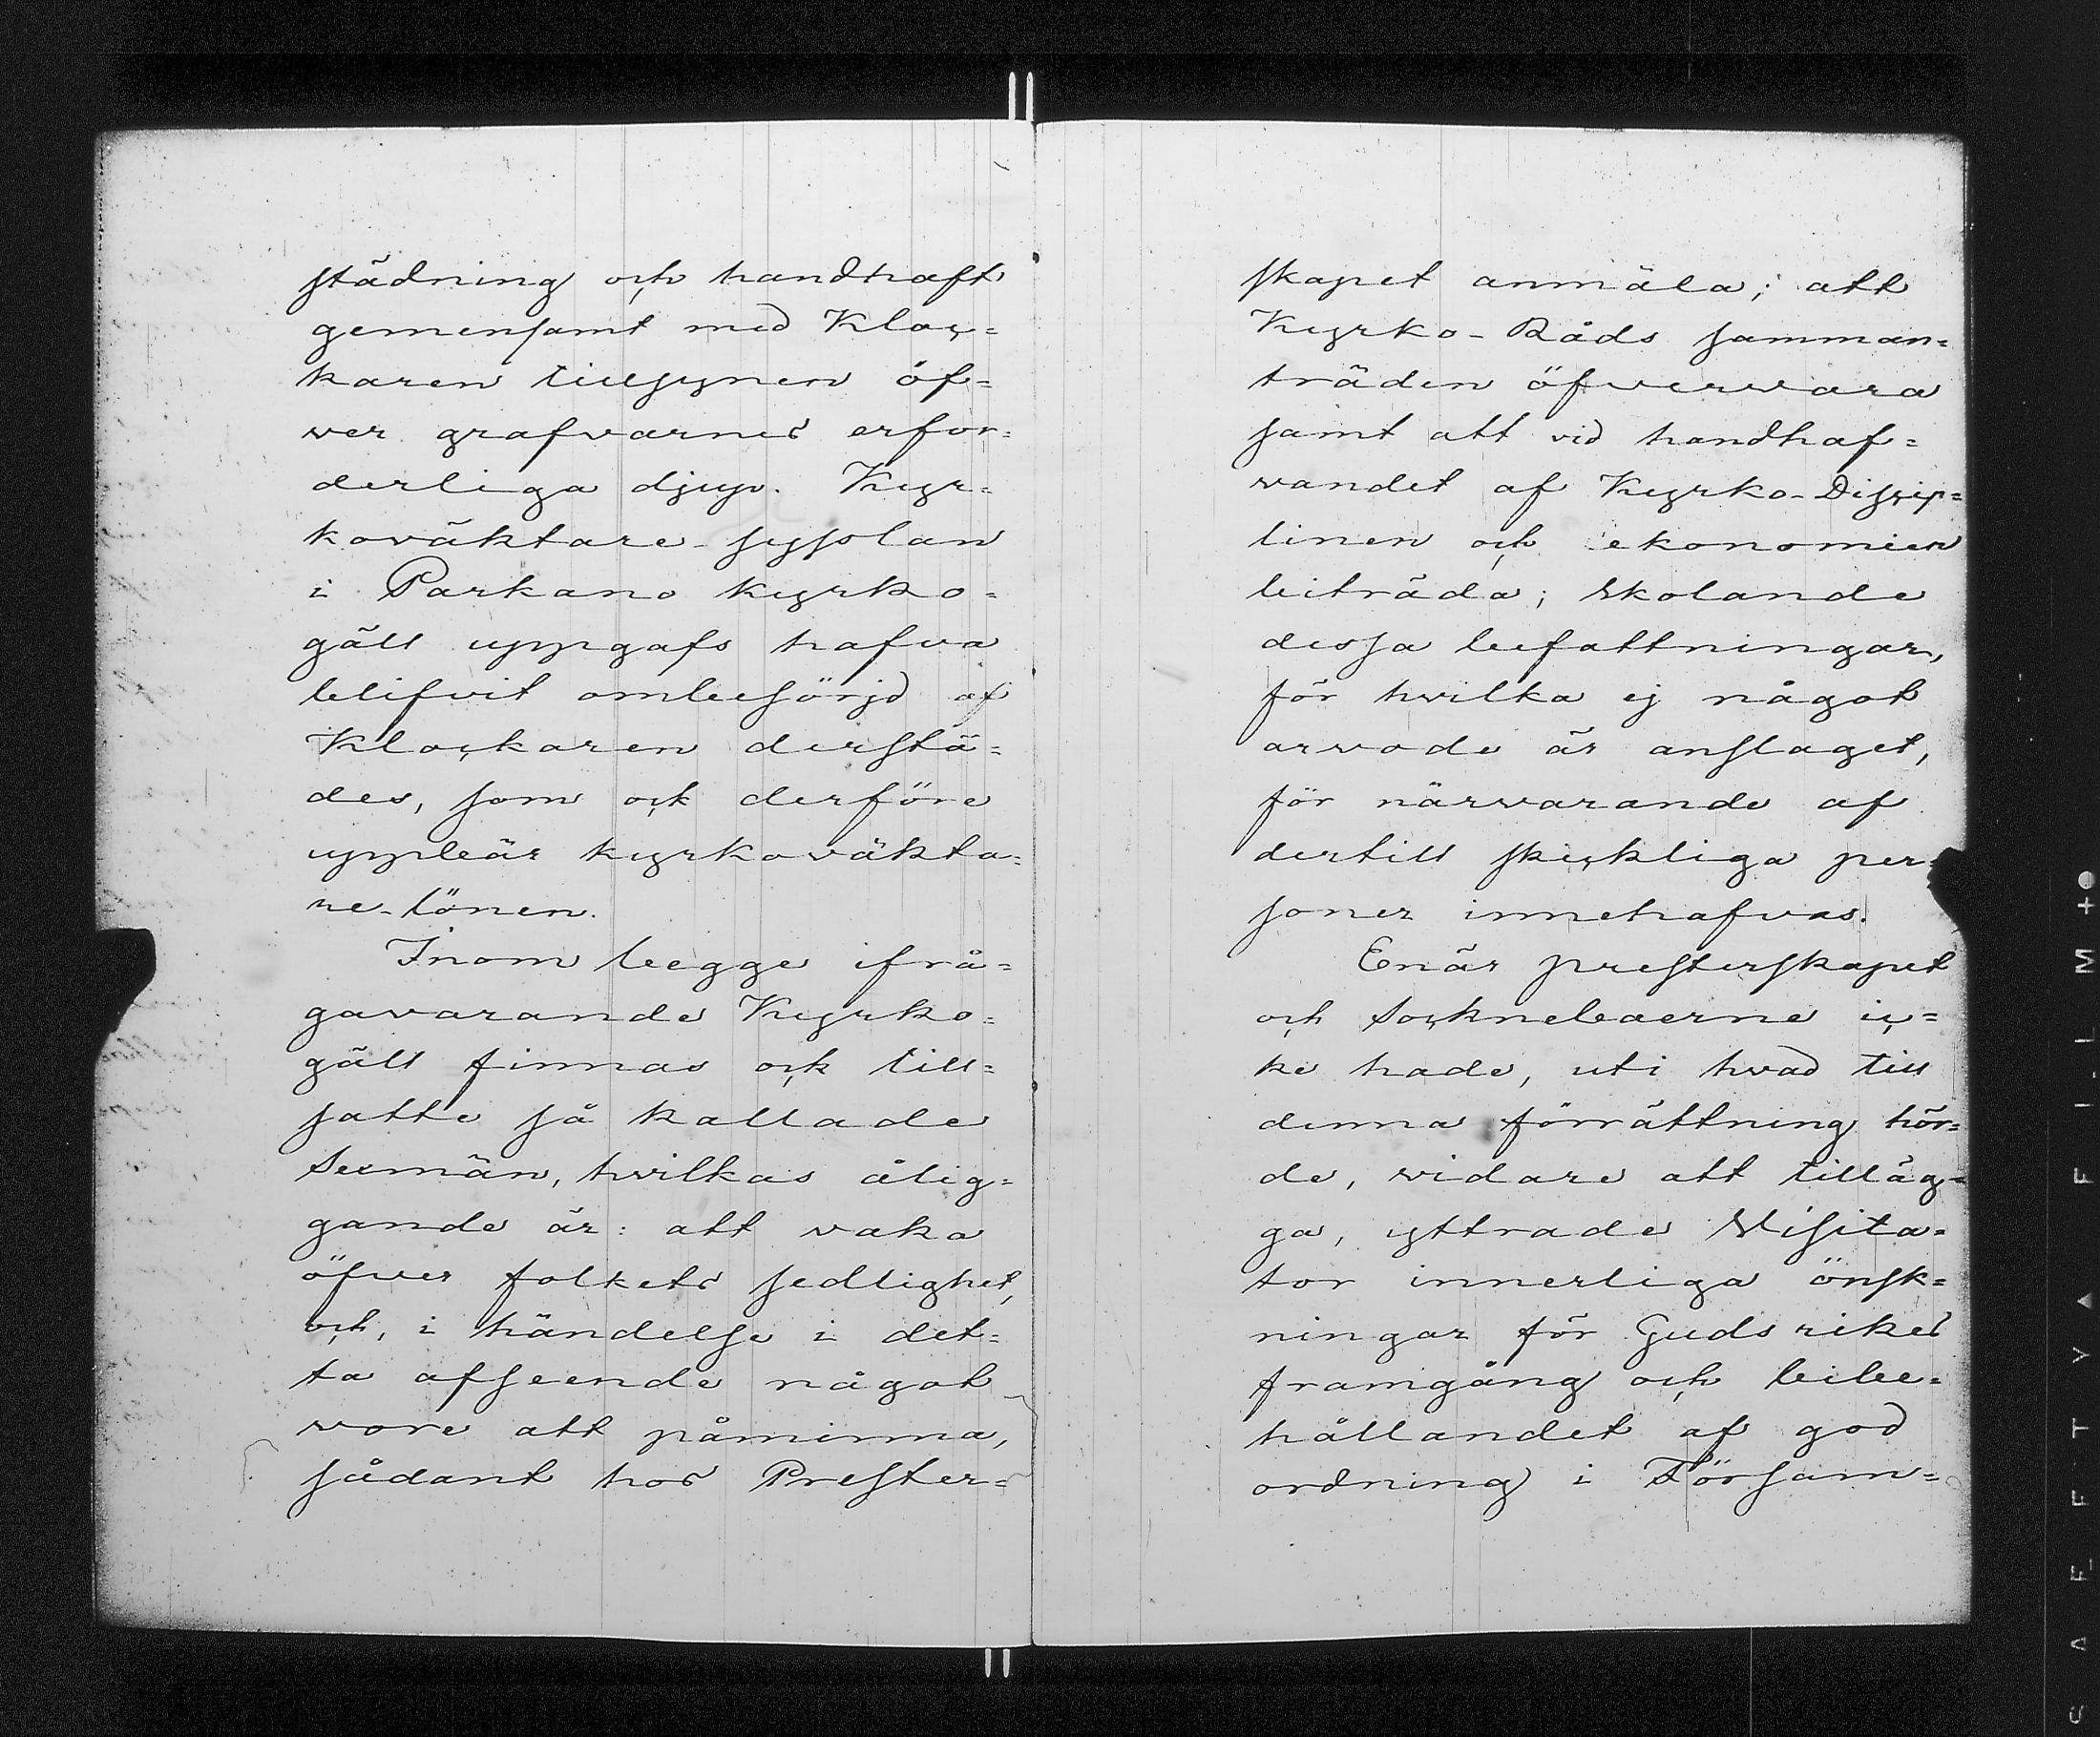 städning och handhaft
gemensamt med Kloc=
karen tillsynen öf=
ver grafvarnes erfor=
derliga djup. Kyr=
koväktare-sysslan
i Parkano kyrko=
gäll uppgafs hafva
blifvit ombesörjd af
Klockaren derstä=
des, som ock derföre
uppbär kyrkoväkta=
re-lönen.
Inom begge ifrå=
gavarande Kyrko=
gäll finnas ock till=
satte så kallade
Sexmän, hvilkas ålig=
gande är: att vaka
öfver folkets sedlighet,
och, i händelse i det=
ta afseende något
vore att påminna,
sådant hos Prester=
skapet anmäla; att
Kyrko-Råds samman=
träden öfvervara
samt att vid handhaf=
vandet af Kyrko-Discip=
linen och ekonomien
biträda; skolande
dessa befattningar,
för hvilka ej något
arvode är anslaget,
för närvarande af
dertill skickliga per=
soner innehafvas.
Enär presterskapet
och Sockneboerne ic=
ke hade, uti hvad till
denna förrättning hör=
de, vidare att tilläg=
ga, yttrade Visita=
tor innerliga önsk=
ningar för Guds rikes
framgång och bibe=
hållandet af god
ordning i Församl=
SAFETY▲FILM+●